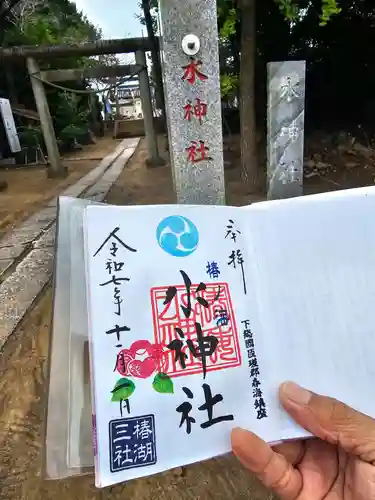 水神社
水神社
奉拝
椿の海
水神社
下総國匝瑳郡椿海鎮座
令和七年
十二月
椿湖
三社